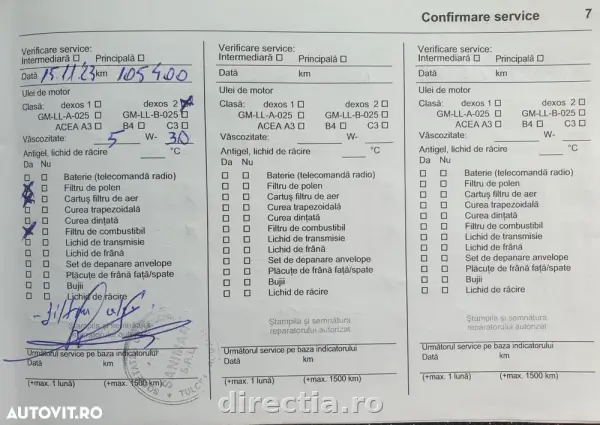 Confirmare service 7
Verificare service:
Intermediară Principală
Data 15.11.23 km 105400
Ulei de motor
Clasă: dexos 1 dexos 2
GM-LL-A-025 GM-LL-B-025
ACEA A3 B4 C3
Vâscozitate: 5 W- 30
Antigel, lichid de răcire °C
Da Nu
Baterie (telecomandă radio)
Filtru de polen
Cartuş filtru de aer
Curea trapezoidală
Curea dinţată
Filtru de combustibil
Lichid de transmisie
Lichid de frână
Set de depanare anvelope
Plăcuţe de frână faţă/spate
Bujii
Lichid de răcire
Ştampila şi semnătura
Următorul service pe baza indicatorului
Data km
(+max. 1 lună) (+max. 1500 km)
TULCEA
Verificare service:
Intermediară Principală
Data km
Ulei de motor
Clasă: dexos 1 dexos 2
GM-LL-A-025 GM-LL-B-025
ACEA A3 B4 C3
Vâscozitate: W-
Antigel, lichid de răcire °C
Da Nu
Baterie (telecomandă radio)
Filtru de polen
Cartuş filtru de aer
Curea trapezoidală
Curea dinţată
Filtru de combustibil
Lichid de transmisie
Lichid de frână
Set de depanare anvelope
Plăcuţe de frână faţă/spate
Bujii
Lichid de răcire
Ştampila şi semnătura
reparatorului autorizat
Următorul service pe baza indicatorului
Data km
(+max. 1 lună) (+max. 1500 km)
Verificare service:
Intermediară Principală
Data km
Ulei de motor
Clasă: dexos 1 dexos 2
GM-LL-A-025 GM-LL-B-025
ACEA A3 B4 C3
Vâscozitate: W-
Antigel, lichid de răcire °C
Da Nu
Baterie (telecomandă radio)
Filtru de polen
Cartuş filtru de aer
Curea trapezoidală
Curea dinţată
Filtru de combustibil
Lichid de transmisie
Lichid de frână
Set de depanare anvelope
Plăcuţe de frână faţă/spate
Bujii
Lichid de răcire
Ştampila şi semnătura
reparatorului autorizat
Următorul service pe baza indicatorului
Data km
(+max. 1 lună) (+max. 1500 km)
AUTOVIT.RO
directia.ro